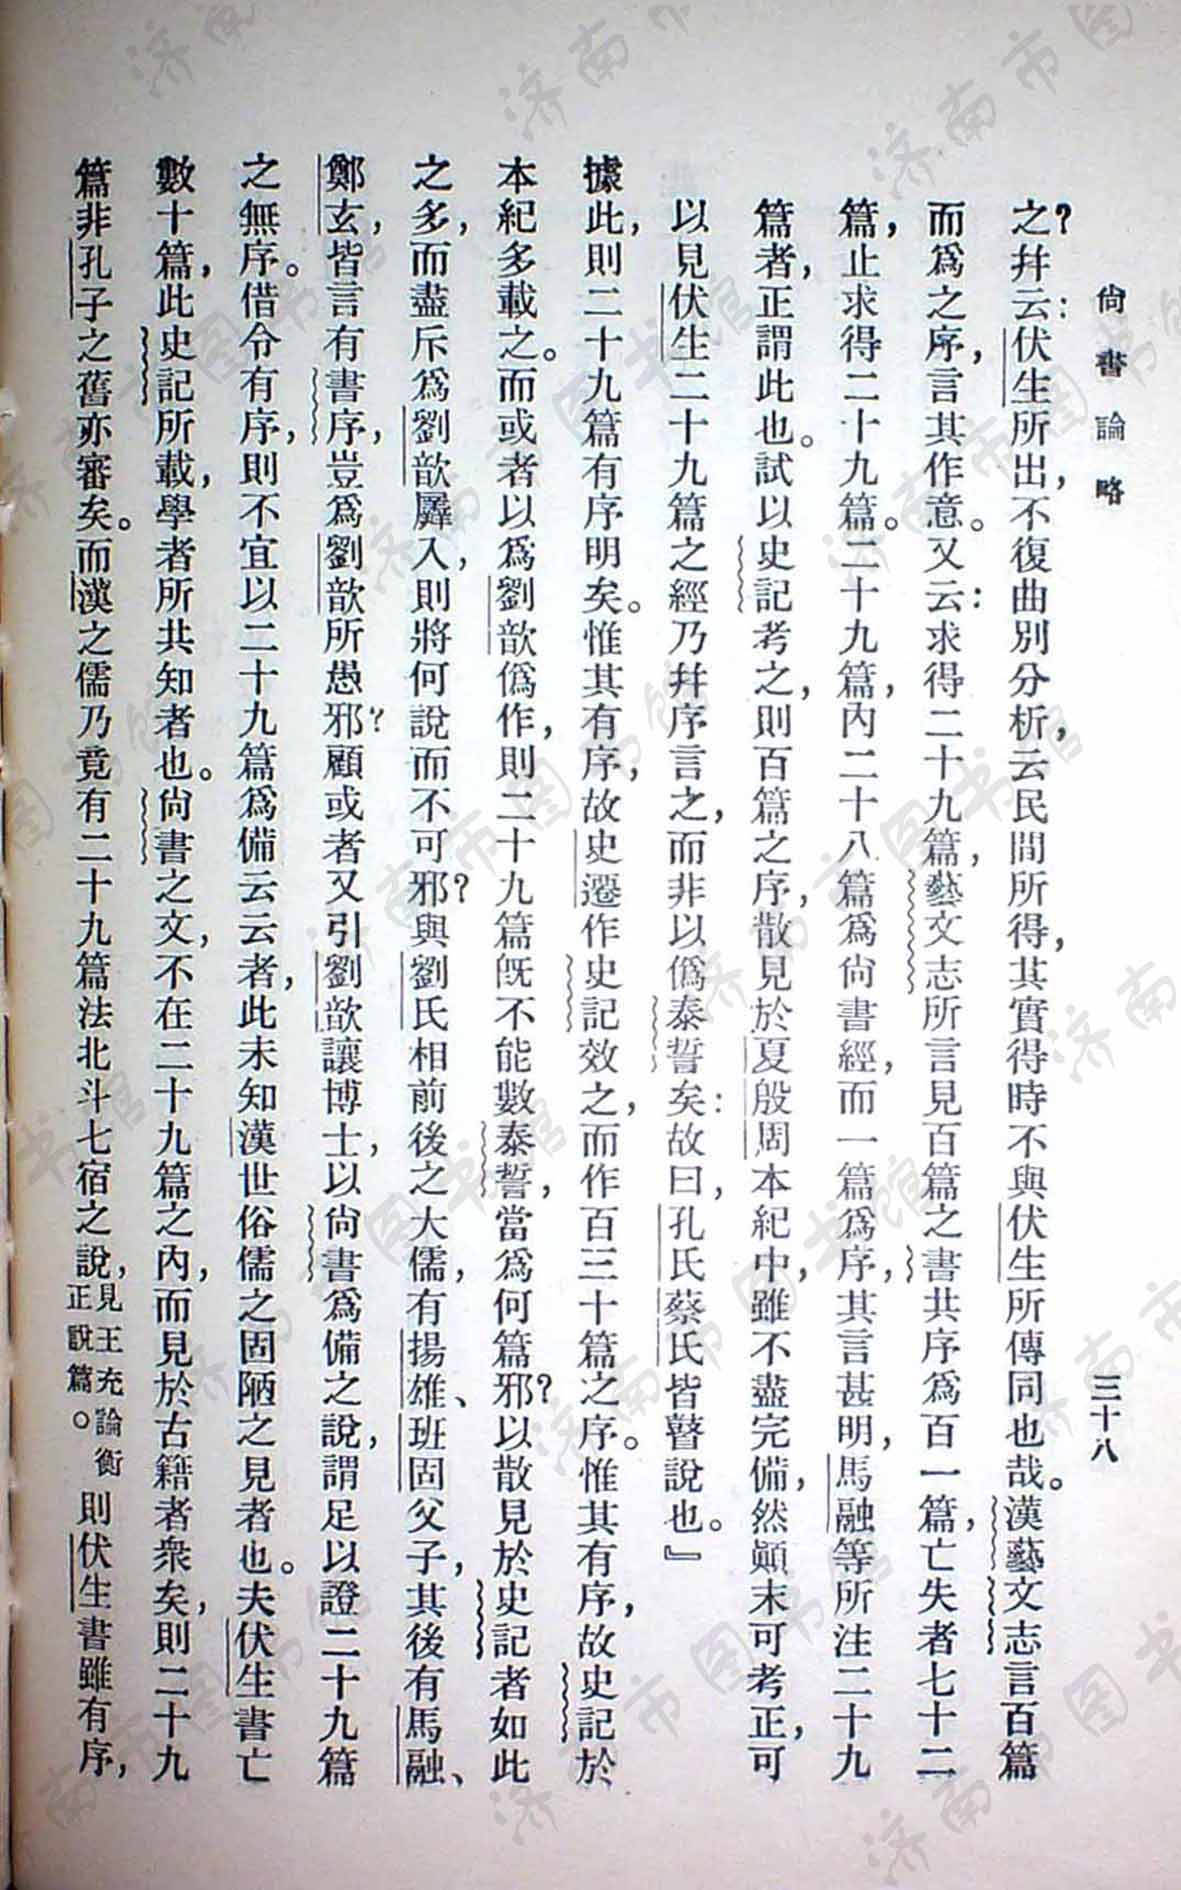 尙書論略
三十八
之？幷云：伏生所出，不復曲別分析，云民間所得，其實得時不與伏生所傳同也哉。漢藝文志言百篇
而爲之序，言其作意。又云：求得二十九篇，藝文志所言見百篇之書共序爲百一篇，亡失者七十二
篇，止求得二十九篇。二十九篇，內二十八篇爲尙書經，而一篇爲序，其言甚明，馬融等所注二十九
篇者，正謂此也。試以史記考之，則百篇之序，散見於夏殷周本紀中，雖不盡完備，然顚末可考正，可
以見伏生二十九篇之經乃幷序言之，而非以僞泰誓矣：故曰，孔氏蔡氏皆瞽說也。』
據此，則二十九篇有序明矣。惟其有序，故史遷作史記效之，而作百三十篇之序。惟其有序，故史記於
本紀多載之。而或者以爲劉歆僞作，則二十九篇旣不能數泰誓，當爲何篇邪？以散見於史記者如此
之多，而盡斥爲劉歆羼入，則將何說而不可邪？與劉氏相前後之大儒，有揚雄、班固父子，其後有馬融、
鄭玄，皆言有書序，豈爲劉歆所愚邪？顧或者又引劉歆讓博士，以尙書爲備之說，謂足以證二十九篇
之無序。借令有序，則不宜以二十九篇爲備云云者，此未知漢世俗儒之固陋之見者也。夫伏生書亡
數十篇，此史記所載，學者所共知者也。尙書之文，不在二十九篇之內，而見於古籍者衆矣，則二十九
篇非孔子之舊亦審矣。而漢之儒乃竟有二十九篇法北斗七宿之說，見王充論衡正說篇。則伏生書雖有序，
濟南市图书馆